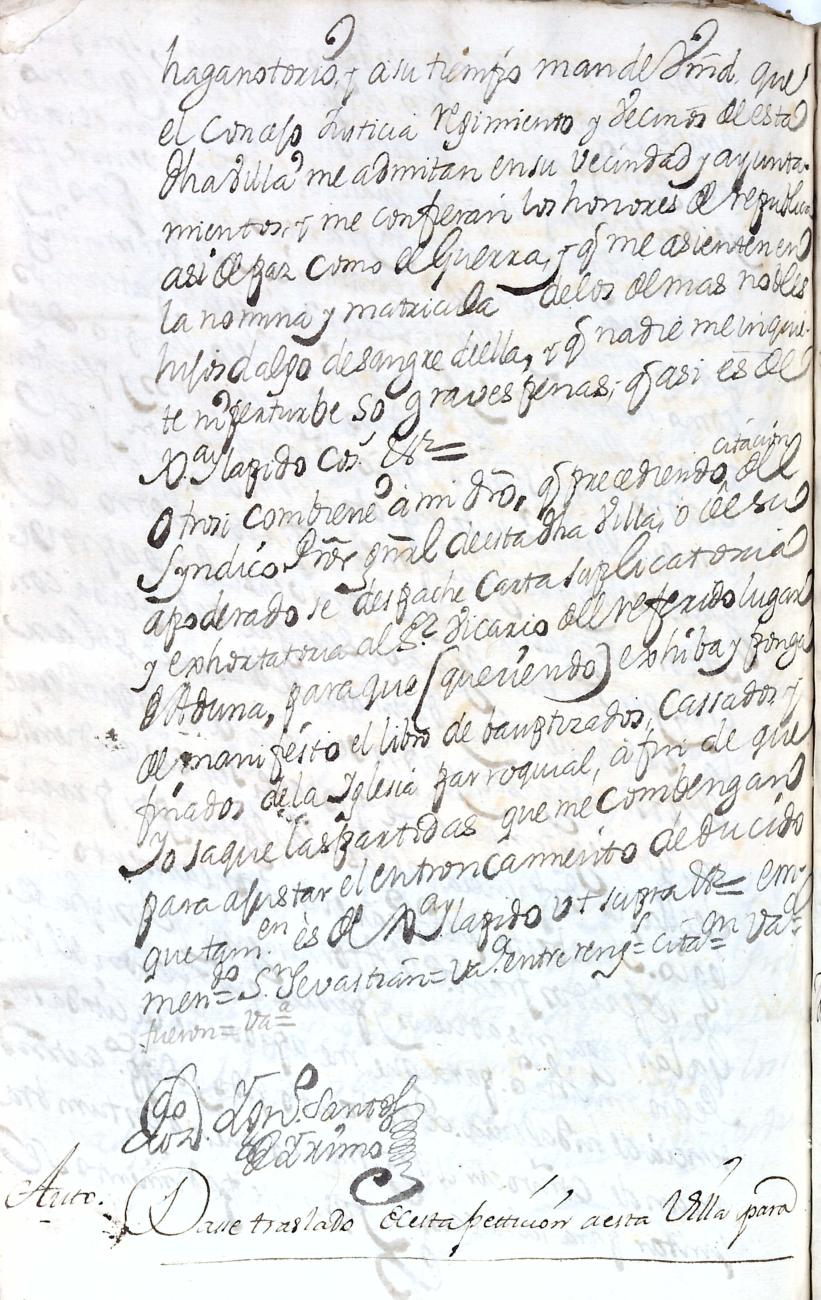 haga notorio, y a su tiempo mande Vmd. que
el Concejo Justicia regimiento y Vecinos de esta
dha Villa me admitan en su Vecindad y ayunta-
mientos, y me confieran los honores de republica
asi de paz como de Guerra, y q me asienten en
la nomina y matricula de los demas nobles
hijosdalgo de sangre de ella, y q nadie me inquie-
te ni perturbe so graves penas; q asi es de
Xa. y lapido Cos. &r=
Otrosi combiene à mi dro, q precediendo citacion del
Syndico Pror gnral de esta dha Villa, o de su
apoderado se despache Carta suplicatoria
y exhortatoria al Sr. Vicario del referido lugar
de Aduna, para que (queriendo) exhiba y ponga
de manifiesto el libro de bauptizados, Cassados y
finados de la Iglesia parroquial, à fin de que
Yo saque las partidas que me combengan
para ajustar el entroncamiento deducido
que tamen. ès de Xa. y lapido ut supra &r= em-
mendo= Sn. Sevastian= Va. entre rengs= citaon= Vaa=
fueron= Vaa=
Ldo Ign. Santos
de Trimo
Auto.
Dase traslado de esta petticion a esta Villa para